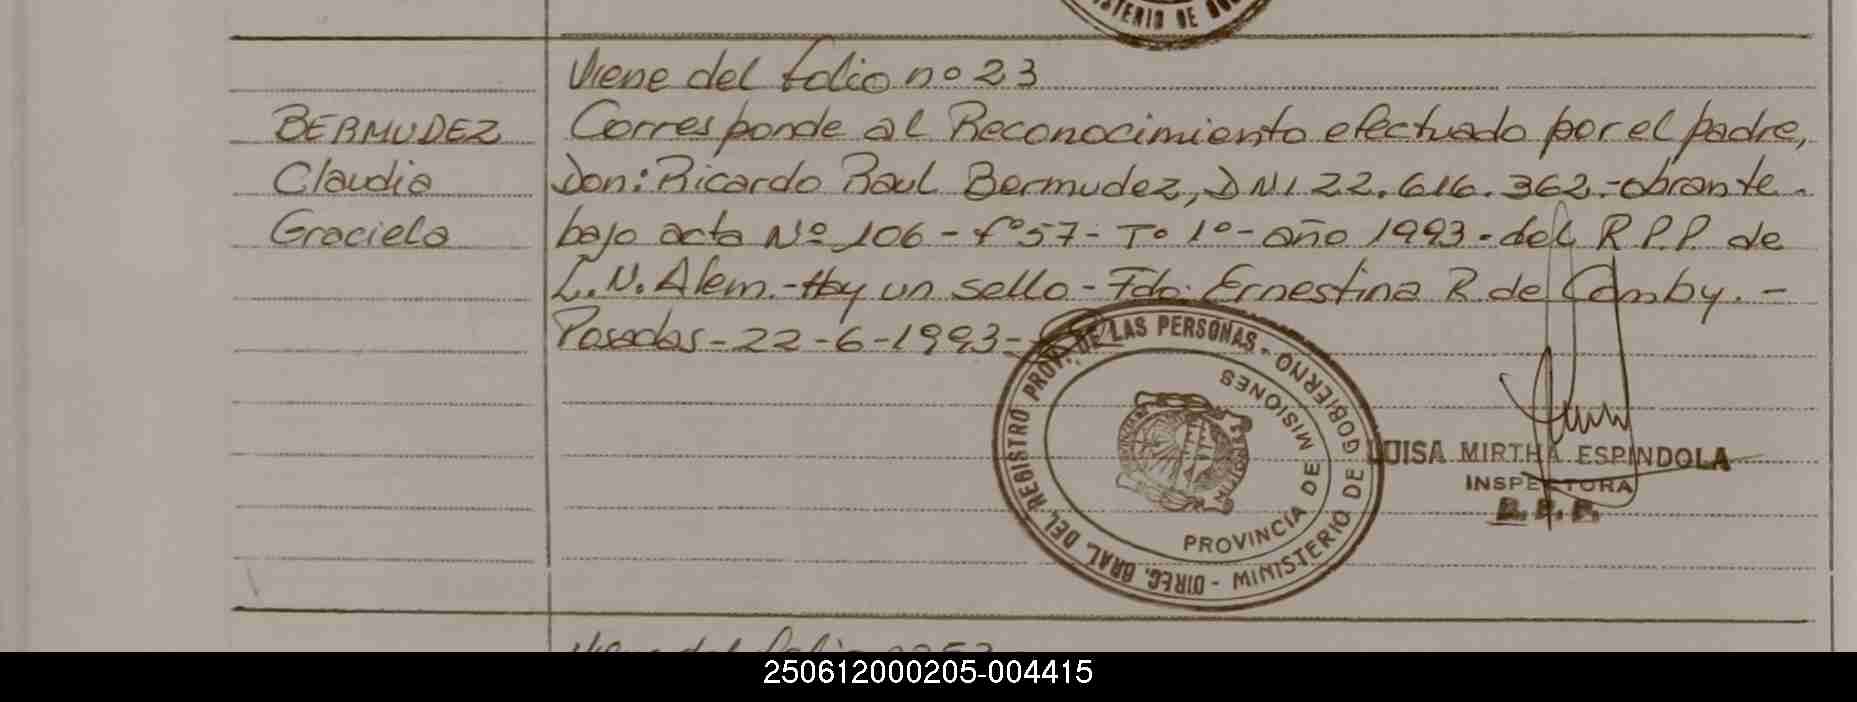 MINISTERIO DE GOB
Viene del folio no 23
BERMUDEZ
Corresponde al Reconocimiento efectuado por el padre,
Claudia
Don: Ricardo Raul Bermudez, DNI 22.616.362.-obrante.
Graciela
bajo acta Nº 106 - fº57 - Tº 1º - año 1993 - del R.P.P. de
L.N. Alem.- Hay un sello - Fdo: Ernestina R. de Comby. -
Posadas - 22 - 6 - 1993 -
DIREC. GRAL. DEL REGISTRO PROV. DE LAS PERSONAS - GOBIERNO
MINISTERIO DE
PROVINCIA DE MISIONES
LUISA MIRTHA ESPINDOLA
INSPECTORA
R. P. P.
Viene del folio
250612000205-004415